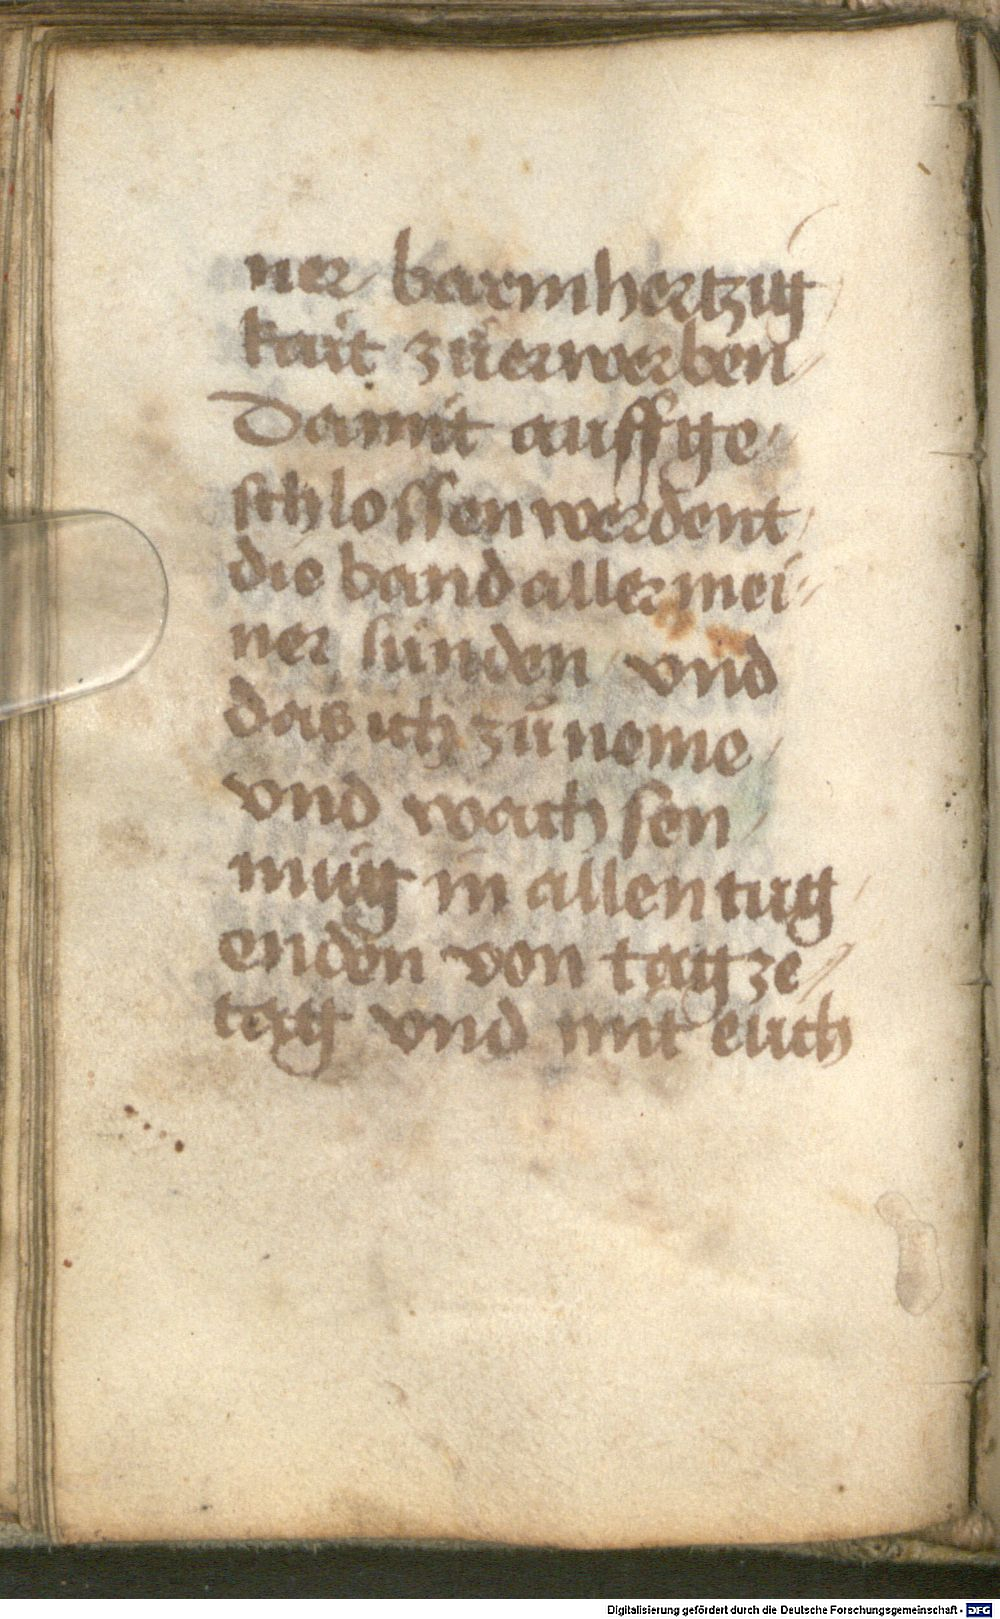 ner barmhertzig
kait zůerwerben
Damit auffge
schlossen werdent
die band aller mei-
ner sünden vnd
das ich zůneme
vnd wachsen
müg in allen tug
enden von tag ze
tag vnd mit euch
Digitalisierung gefördert durch die Deutsche Forschungsgemeinschaft - DFG